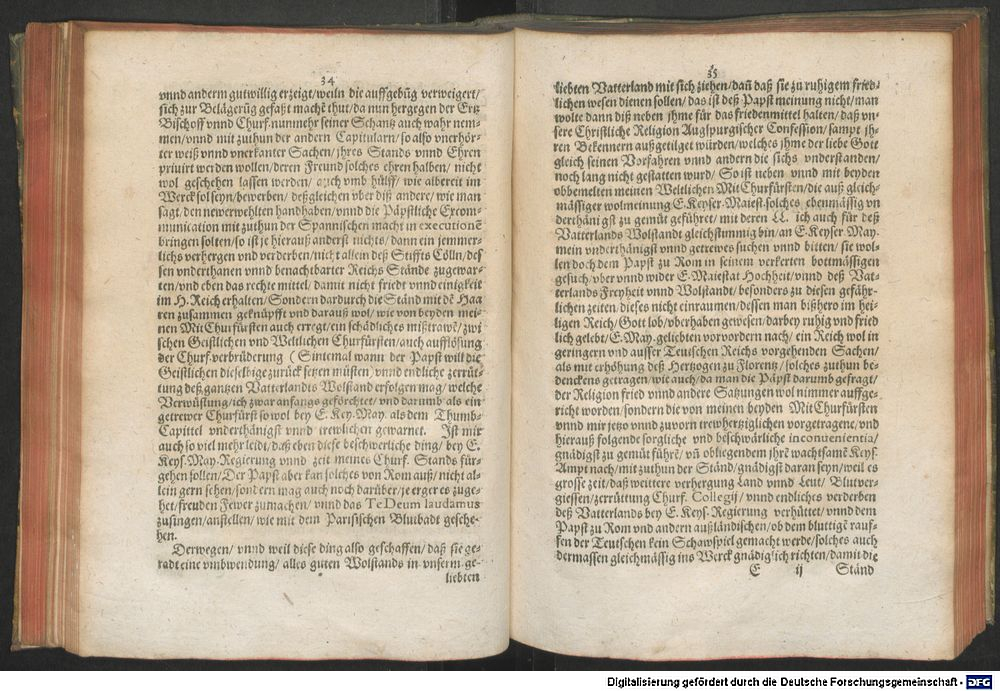 34
vnnd anderm gutwillig erzeigt/weiln die auffgebũg verweigert/
sich zur Belägerũg gefaßt machẽ thut/da nun hergegen der Ertz
Bischoff vnnd Churf. nunmehr seiner Schantz auch wahr nem-
men/vnnd mit zuthun der andern Capitularn/so also vnerhör-
ter weiß vnnd vnerkanter Sachen/jhres Stands vnnd Ehren
priuirt werden wollen/deren Freund solches ehren halben/nicht
wol geschehen lassen werden/auch vmb hülff/wie albereit im
Werck sol seyn/bewerben/deßgleichen vber diß andere/wie man
sagt/den newerwehlten handhaben/vnnd die Päpstliche Excom-
munication mit zuthun der Spannischen macht in executionẽ
bringen solten/so ist je hierauß anderst nichts/dann ein jemmer-
lichs verhergen vnd verderben/nicht allein deß Stiffts Cölln/des
sen vnderthanen vnnd benachtbarter Reichs Stände zugewar-
ten/vnd eben das rechte mittel/damit nicht friedt vnnd einigkeit
im H. Reich erhalten/Sondern dardurch die Ständ mit dẽ Haa
ren zusammen geknüpfft vnd darauß wol/wie von beyden mei-
nen Mit Churfürsten auch erregt/ein schädliches mißtrawẽ/zwi
schen Geistlichen vnd Weltlichen Churfürsten/auch aufflösung
der Churf. verbrüderung (Sintemal wann der Papst will die
Geistlichen dieselbige zurück setzen müsten) vnnd endliche zerrüt-
tung deß gantzen Vatterlandts Wolstand erfolgen mag/welche
Verwüstung/ich zwar anfangs geförchtet/vnd darumb als ein
getrewer Churfürst so wol bey E. Key. May. als dem Thumb-
Capittel vnderthänigst vnnd trewlichen gewarnet. Ist mir
auch so viel mehr leidt/daß eben diese beschwerliche ding/bey E.
Keys. May. Regierung vnnd zeit meines Churf. Stands für-
gehen sollen/Der Papst aber kan solches von Rom auß/nicht al-
lein gern sehen/sondern mag auch noch darüber/je erger es zuge-
het/freuden Fewer zumachen/vnnd das Te Deum laudamus
zusingen/anstellen/wie mit dem Parisischen Blutbadt gesche-
hen.
Derwegen/vnnd weil diese ding also geschaffen/daß sie ge-
radt eine vmbwendung/alles guten Wolstands in vnserm ge-
liebten
35
liebten Vatterland mit sich ziehen/dañ daß sie zu ruhigem fried-
lichen wesen dienen sollen/das ist deß Papst meinung nicht/man
wolte dann diß neben jhme für das friedenmittel halten/daß vn-
sere Christliche Religion Augspurgischer Confession/sampt jh-
ren Bekennern außgetilget würden/welches jhme der liebe Gott
gleich seinen Vorfahren vnnd andern die sichs vnderstanden/
noch lang nicht gestatten wurd/So ist neben vnnd mit beyden
obbemelten meinen Weltlichen Mit Churfürsten/die auß gleich-
mässiger wolmeinung E. Keyser. Maiest. solches ebenmässig vn
derthänigst zu gemüt geführet/mit deren LL. ich auch für deß
Vatterlands Wolstandt gleichstimmig bin/an E. Keyser May.
mein vnderthänigst vnnd getrewes suchen vnnd bitten/sie wol-
len doch dem Papst zu Rom in seinem verkerten bottmässigen
gesuch/vber vnnd wider E. Maiestat Hochheit/vnnd deß Vat-
terlands Freyheit vnnd Wolstandt/besonders zu diesen gefähr-
lichen zeiten/dieses nicht einraumen/dessen man bißhero im hei-
ligen Reich/Gott lob/vberhaben gewesen/darbey ruhig vnd fried
lich gelebt/E. May. geliebten vorvordern nach/ein Reich wol in
geringern vnd ausser Teutschen Reichs vorgehenden Sachen/
als mit erhöhung deß Hertzogen zu Florentz/solches zuthun be-
denckens getragen/wie auch/da man die Päpst darumb gefragt/
der Religion fried vnnd andere Satzungen wol nimmer auffge-
richt worden/sondern die von meinen beyden Mit Churfürsten
vnnd mir jetzo vnnd zuvorn trewhertziglichen vorgetragene/vnd
hierauß folgende sorgliche vnd beschwärliche inconuenientia/
gnädigst zu gemüt führẽ/vñ obliegendem jhrẽ wachtsamẽ Keys.
Ampt nach/mit zuthun der Ständ/gnädigst daran seyn/weil es
grosse zeit/daß weittere verhergung Land vnnd Leut/Blutver-
giessen/zerrüttung Churf. Collegij/vnnd endliches verderben
deß Vatterlands bey E. Keys. Regierung verhüttet/vnnd dem
Papst zu Rom vnd andern außländischen/ob dem bluttigẽ rauf-
fen der Teutschen kein Schawspiel gemacht werde/solches auch
dermassen gleichmässig ins Werck gnädiglich richten/damit die
E ij Ständ
Digitalisierung gefördert durch die Deutsche Forschungsgemeinschaft - DFG